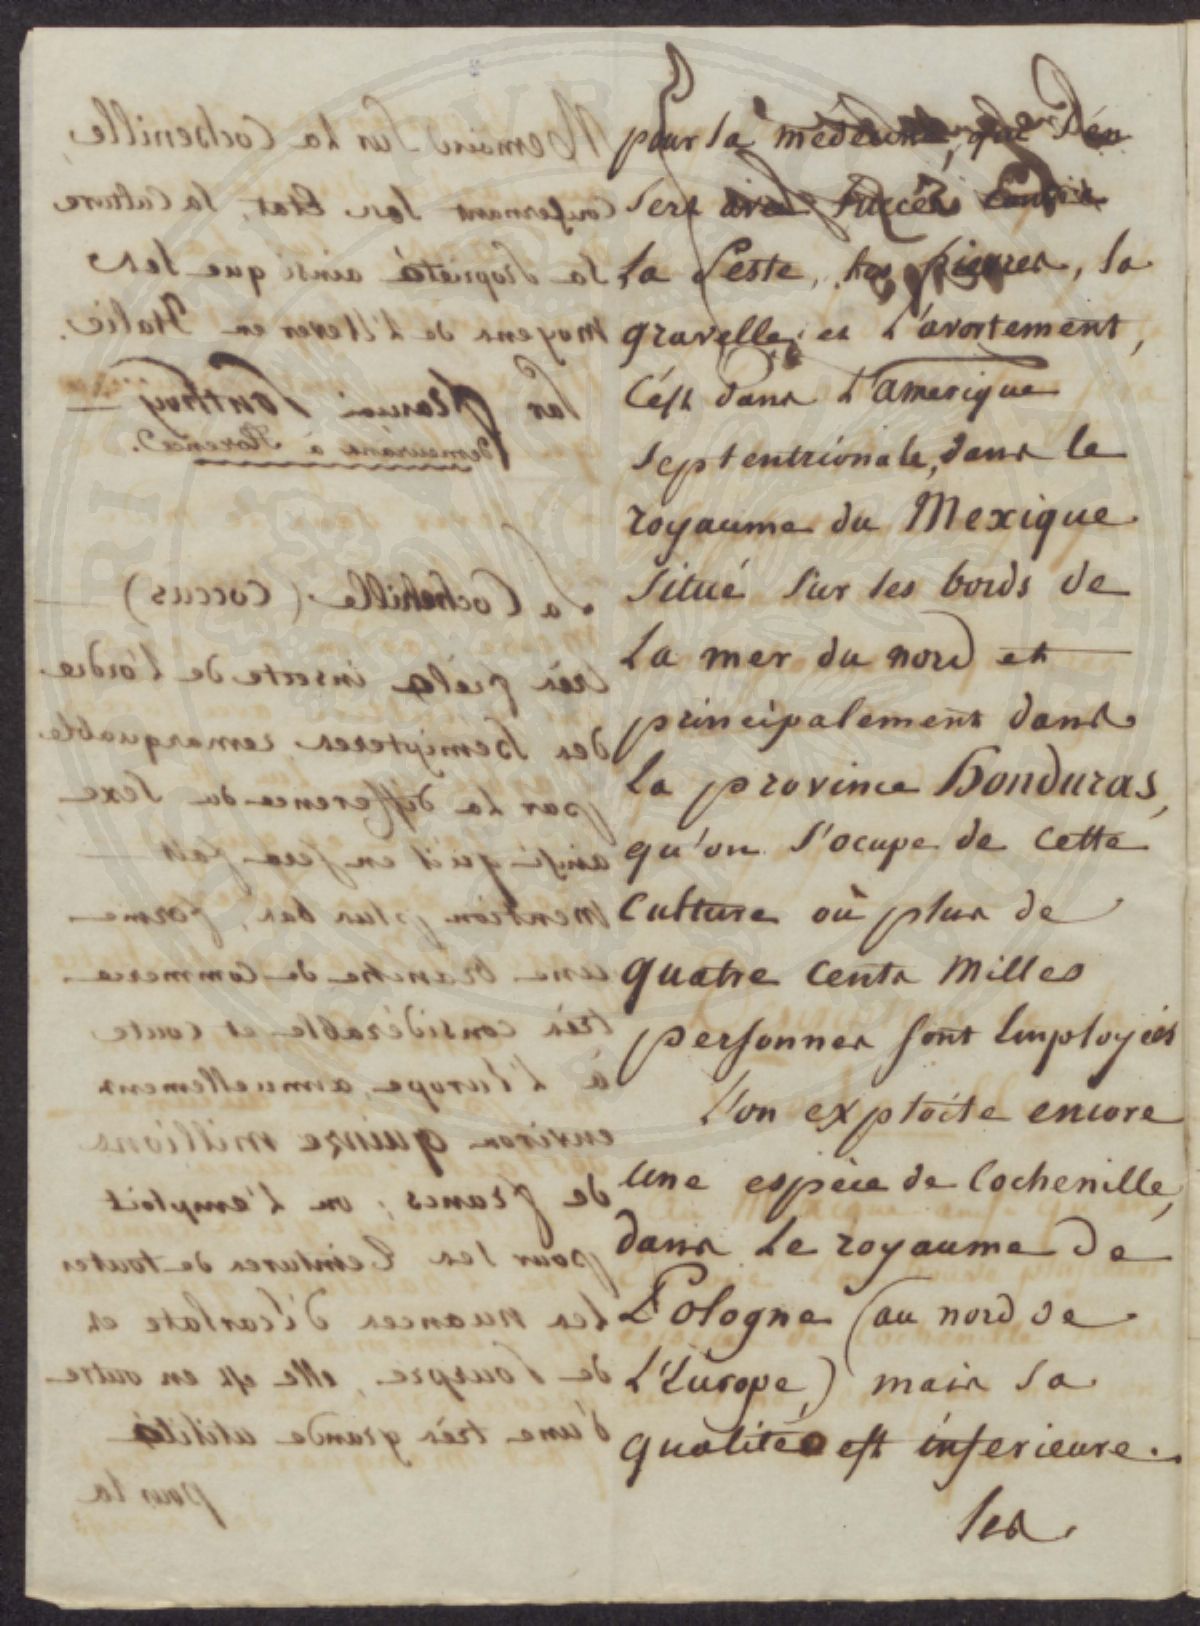 pour la médecine, que l'en
sert avec succés contre
la Peste, les fievres, la
gravelle, et l'avortement,
C'est dans l'amerique
septentrionale, dans le
royaume du Mexique
situé sur les bords de
la mer du nord et
principalement dans
la province Honduras,
qu'on s'ocupe de cette
Culture où plus de
quatre cents Milles
personnes sont Employées
l'on exploite encore
une espèce de Cochenille,
dans le royaume de
Pologne (au nord de
l'Europe,) mais sa
qualité est inferieure.
les